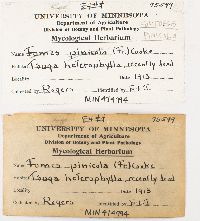 75549
UNIVERSITY OF MINNESOTA
Department of Agriculture
Division of Botany and Plant Pathology
Mycological Herbarium
Name Fomes pinicola (Fr.) Cooke
Host Tsuga heterophylla, recently dead
Locality Date 1913
Collected by Rogers Identified by
MIN 474794
75549
UNIVERSITY OF MINNESOTA
Department of Agriculture
Division of Botany and Plant Pathology
Mycological Herbarium
Name Fomes pinicola (Fr.) Cooke
Host Tsuga heterophylla, recently dead
Locality Date 1913
Collected by Rogers Identified by
MIN 474794